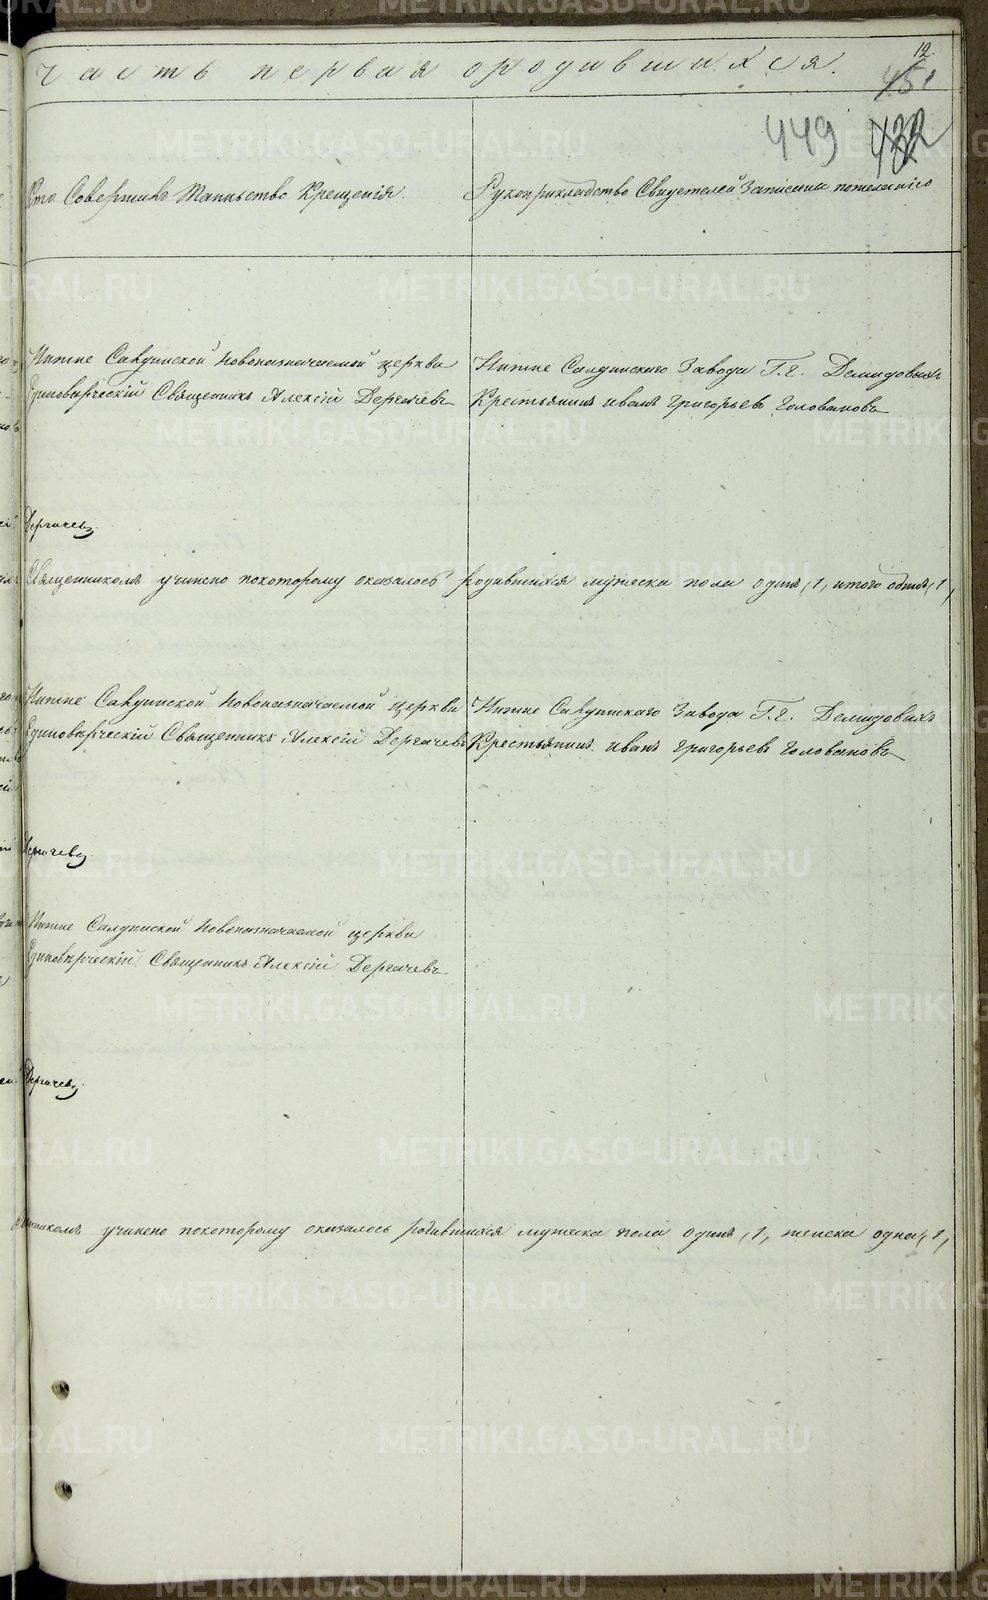 Часть первая ородившихся.
12
451
449 432
Кто Совершилъ Таинство Крещенія.
Рукоприкладство Свидетелей Записина пожеланiю
Нижне Салдинской новоназначаемой церкви
Единоверческій Священникъ Алексій Дергачевъ
Нижне Салдинскаго Завода Г.г. Демидовыхъ
Крестьянинъ иванъ григорьевъ головановъ
Дергачевъ
Священникомъ учинено покоторому оказалось родившихся мужеска пола одинъ, 1, итого одинъ, 1,
Нижне Салдинской Новоназначаемой церкви
Единоверческій Священникъ Алексій Дергачевъ
Нижне Салдинскаго Завода Г.г. Демидовыхъ
Крестьянинъ. иванъ григорьевъ головановъ
Дергачевъ
Нижне Салдинской Новоназначаемой церкви
Единоверческій Священникъ Алексій Дергачевъ
Дергачевъ
учинено покоторому оказалось родившихся мужеска пола одинъ, 1, женска одна, 1,
METRIKI.GASO-URAL.RU